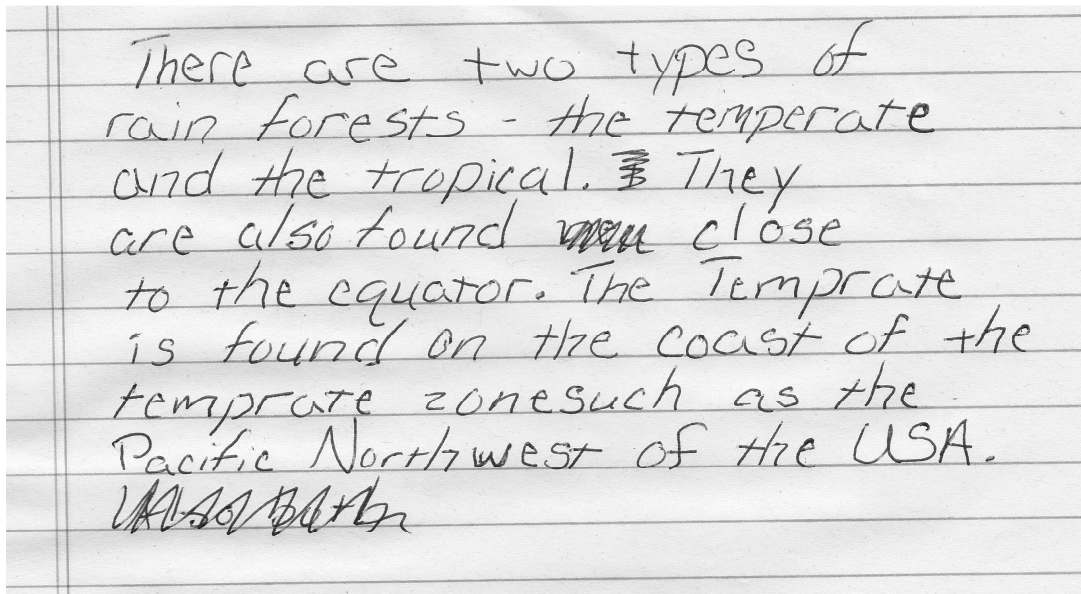 There are two types of
rain forests - the temperate
and the tropical. They
are also found close
to the equator. The Temprate
is found on the coast of the
temprate zone such as the
Pacific Northwest of the USA.